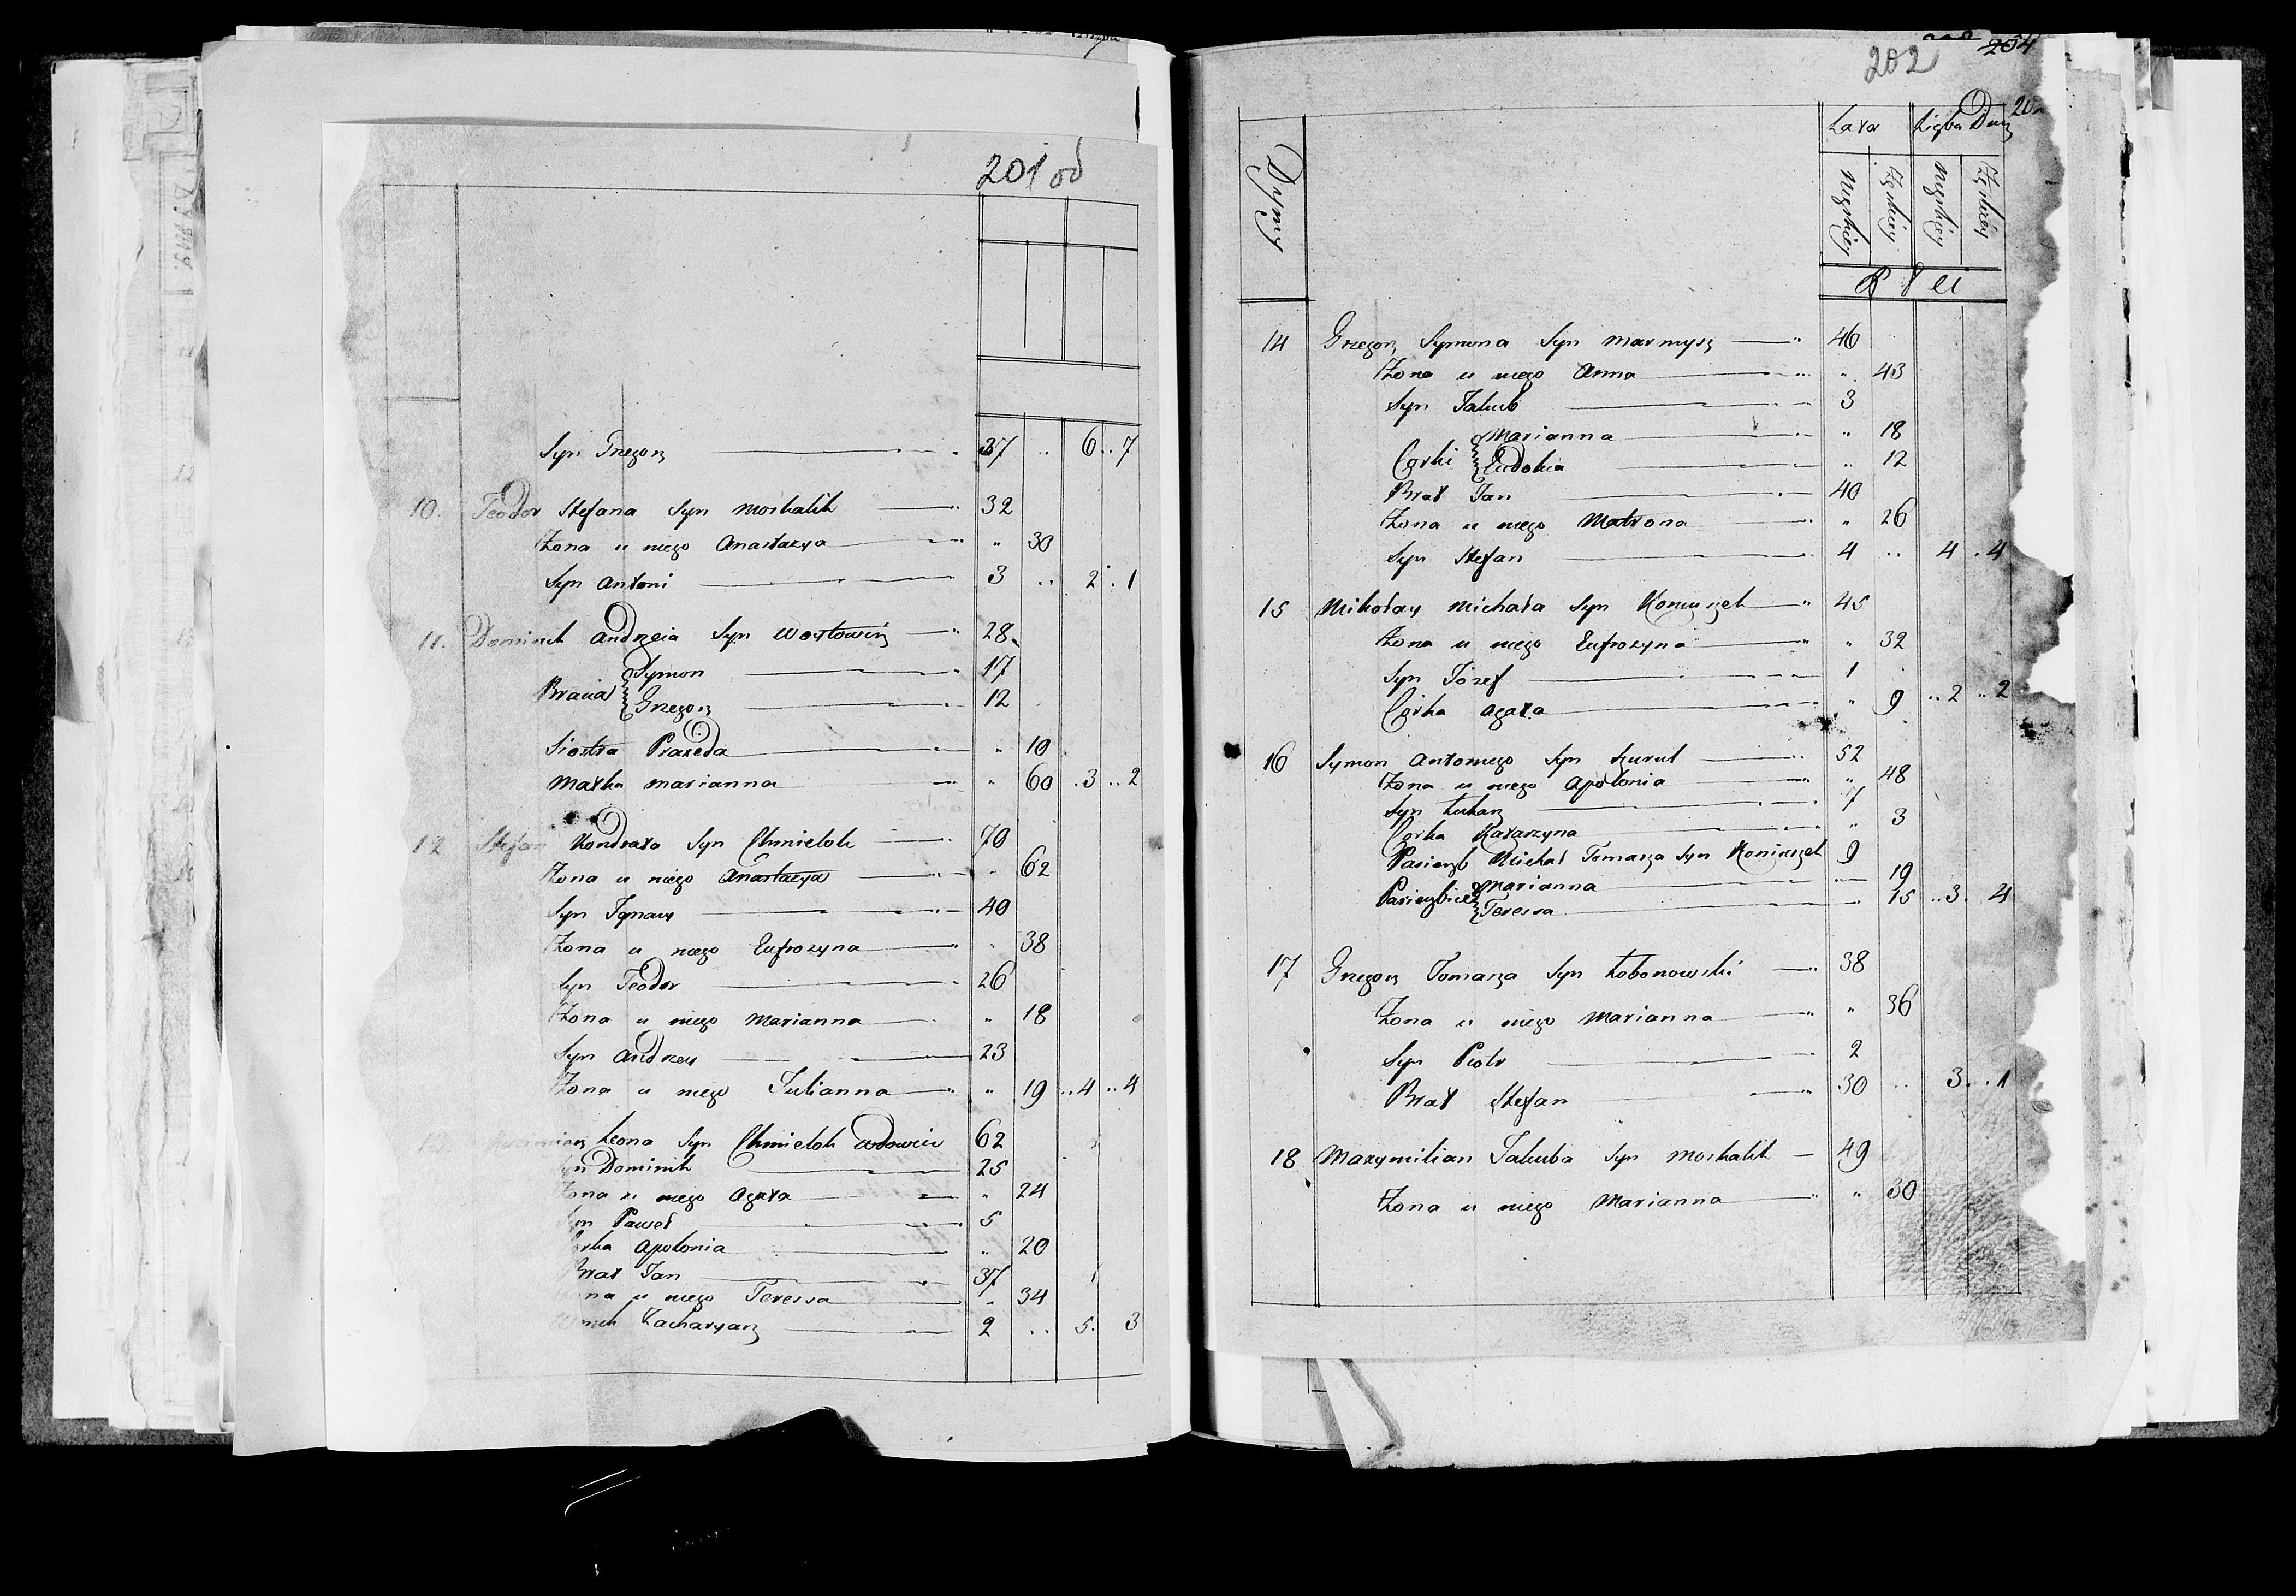 201 od
Syn Grzegorz 37 .. 6 .. 7
10. Teodor Stefana Syn Moskalik 32
Żona u niego Anastazya " 30
Syn Antoni 3 .. 2 .. 1
11. Dominik Andrzeia Syn 28
Bracia Symon 17
Grzegorz 12
Siostra Praxeda " 10
Matka Marianna " 60 .. 3 .. 2
12 Stefan Kondrata Syn Chmielok 70
Żona u niego Anastazya " 62
Syn Ignacy 40
Żona u niego Eufrozyna " 38
Syn Teodor 26
Żona u niego Marianna " 18
Syn Andrzey 23
Żona u niego Julianna " 19 .. 4 .. 4
Leona Syn Chmielok wdowiec 62
Syn Dominik 25
Żona u niego Agata " 24
Syn Paweł 5
Corka Apolonia " 20
Brat Jan 37
Żona u niego Teressa " 34
Zacharyasz 2 .. 5. 3
204
202
Dymy
Lata Liczba Dusz
Męzkiey Żęńskiey Męzkiey Żęńskiey
14 Grzegorz Symona Syn Marmysz 46
Żona u niego Anna " 43
Syn Jakub 3
Corki Marianna " 18
Eudokia " 12
Brat Jan 40
Żona u niego Matrona " 26
Syn Stefan 4 .. 4 . 4
15 Mikołay Michała Syn Koniuszek 45
Żona u niego Eufrozyna " 32
Syn Józef 1
Córka Agata " 9 .. 2 .. 2
16 Symon Antoniego Syn Szurul 52
Żona u niego Apolonia " 48
Syn Łukasz 7
Corka Katarzyna " 3
Pasierzb Michał Tomasza Syn Koniuszek 9
Pasierzbice Marianna 19
Teressa 15 .. 3. 4
17 Grzegorz Tomasza Syn Łobonowski 38
Żona u niego Marianna " 36
Syn Piotr 2
Brat Stefan 30 .. 3. . 1
18 Maxymilian Jakuba Syn Moskalik 49
Żona u niego Marianna " 30